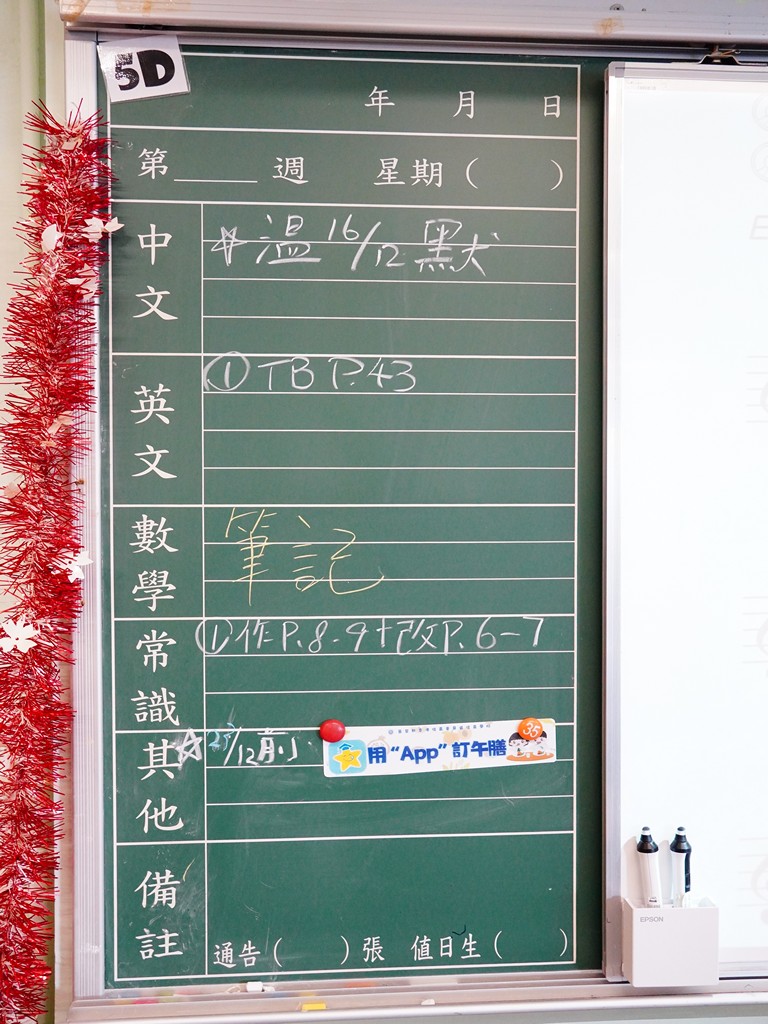 5D
年 月 日
第____週 星期( )
中文 ☆溫16/12默
英文 ①TB P.43
數學 筆記
常識 ①作P.8-9+改P.6-7
其他 ☆ 25/12前
用“App”訂午膳 35
備註
通告( )張 值日生( )
EPSON